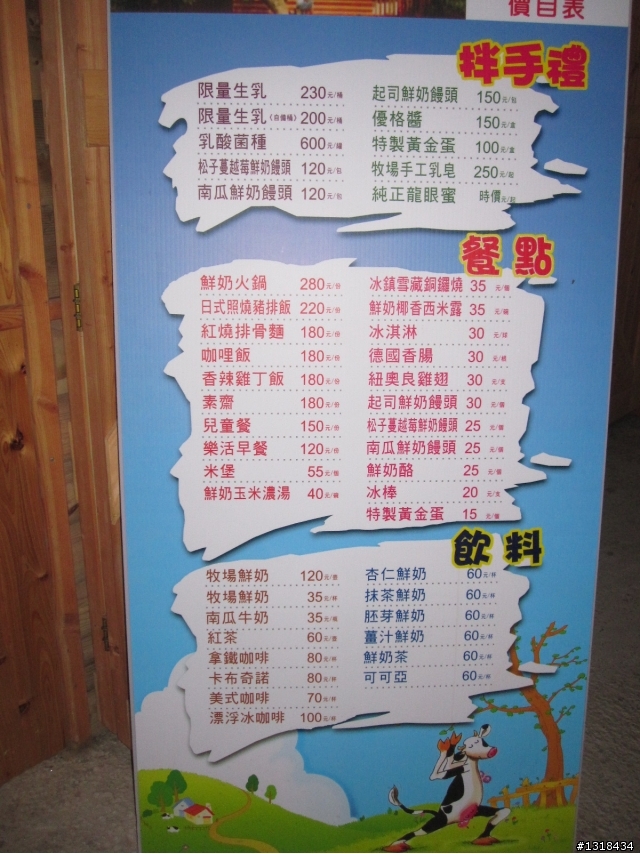 價目表
拌手禮
限量生乳 230元/桶
限量生乳(自備桶) 200元/桶
乳酸菌種 600元/罐
松子蔓越莓鮮奶饅頭 120元/包
南瓜鮮奶饅頭 120元/包
起司鮮奶饅頭 150元/包
優格醬 150元/盒
特製黃金蛋 100元/盒
牧場手工乳皂 250元/起
純正龍眼蜜 時價元/起
餐點
鮮奶火鍋 280元/份
日式照燒豬排飯 220元/份
紅燒排骨麵 180元/份
咖哩飯 180元/份
香辣雞丁飯 180元/份
素齋 180元/份
兒童餐 150元/份
樂活早餐 120元/份
米堡 55元/個
鮮奶玉米濃湯 40元/碗
冰鎮雪藏銅鑼燒 35元/個
鮮奶椰香西米露 35元/碗
冰淇淋 30元/球
德國香腸 30元/根
紐奧良雞翅 30元/支
起司鮮奶饅頭 30元/個
松子蔓越莓鮮奶饅頭 25元/個
南瓜鮮奶饅頭 25元/個
鮮奶酪 25元/個
冰棒 20元/支
特製黃金蛋 15元/顆
飲料
牧場鮮奶 120元/壺
牧場鮮奶 35元/杯
南瓜牛奶 35元/瓶
紅茶 60元/壺
拿鐵咖啡 80元/杯
卡布奇諾 80元/杯
美式咖啡 70元/杯
漂浮冰咖啡 100元/杯
杏仁鮮奶 60元/杯
抹茶鮮奶 60元/杯
胚芽鮮奶 60元/杯
薑汁鮮奶 60元/杯
鮮奶茶 60元/杯
可可亞 60元/杯
#1318434